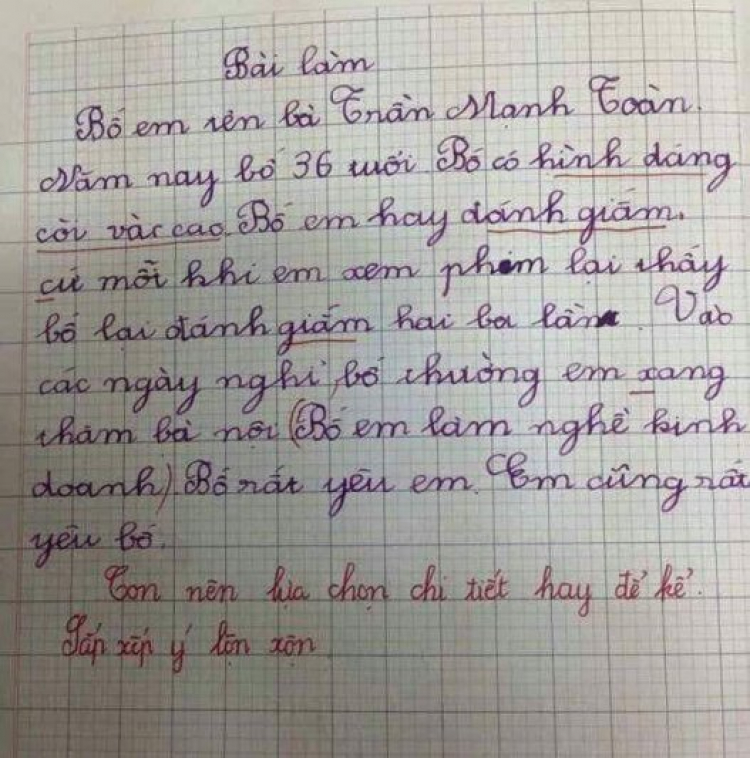 Bài làm
Bố em tên là Trần Mạnh Toàn.
Năm nay bố 36 tuổi Bố có hình dáng
còi và cao. Bố em hay đánh giắm.
cứ mỗi khi em xem phim lại thấy
bố lại đánh giắm hai ba lần. Vào
các ngày nghỉ, bố thường em xang
thăm bà nội (Bố em làm nghề kinh
doanh) Bố rất yêu em. Em cũng rất
yêu bố.
Con nên lựa chọn chi tiết hay để kể.
Sắp xếp ý lộn xộn